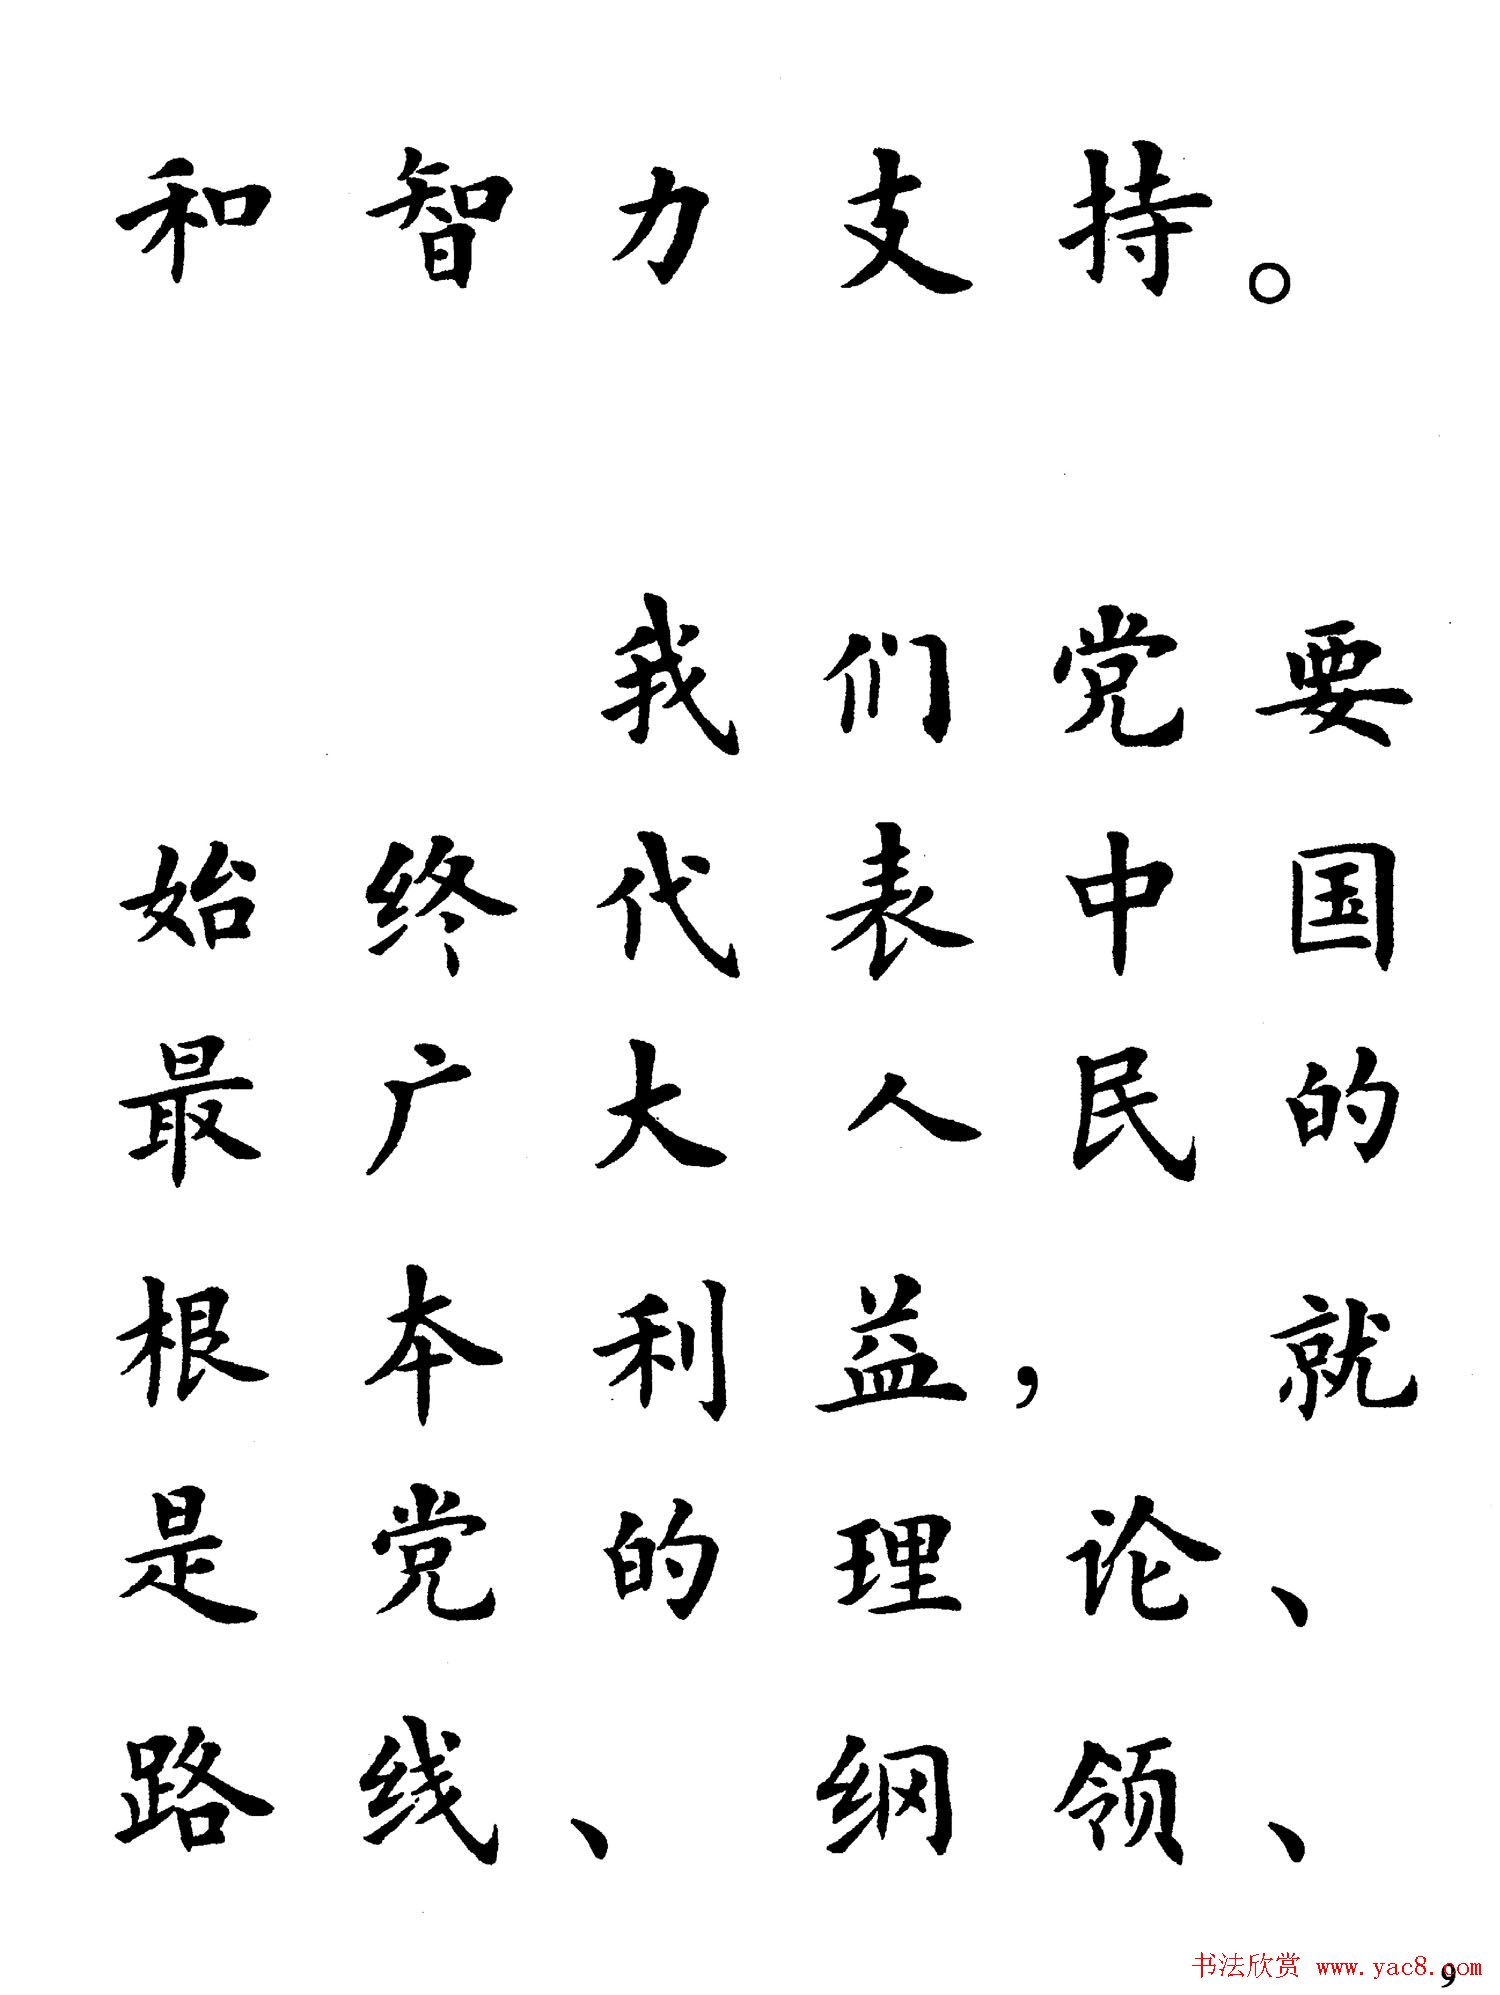 和智力支持。
我们党要
始终代表中国
最广大人民的
根本利益，就
是党的理论、
路线、纲领、
书法欣赏 www.yac8.com
9